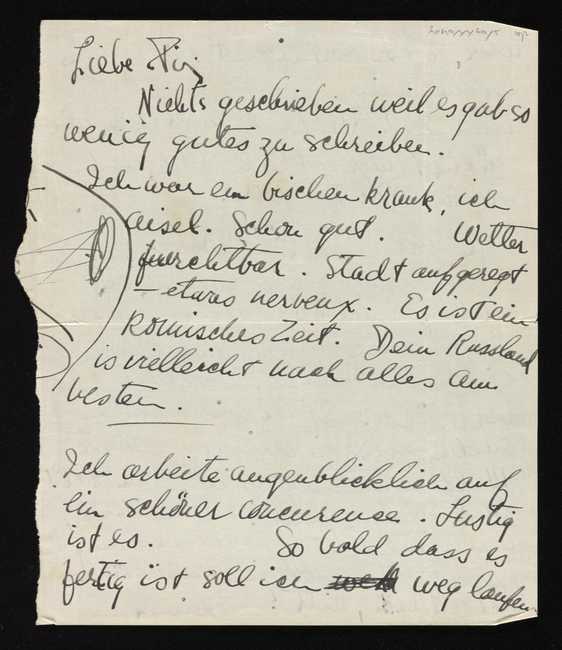 Liebe
Nichts geschrieben weil es gab so
wenig gutes zu schreiben.
Ich war ein bischen krank, ich
. Schon gut. Wetter
fuerchtbar. Stadt aufgeregt
– etwas nerveux. Es ist ein
Komisches Zeit. Dein Russland
is vielleicht nach alles am
besten.
Ich arbeite augenblicklich auf
ein schöner concurence. Lustig
ist es. So bald dass es
fertig ist soll ich weg laufen